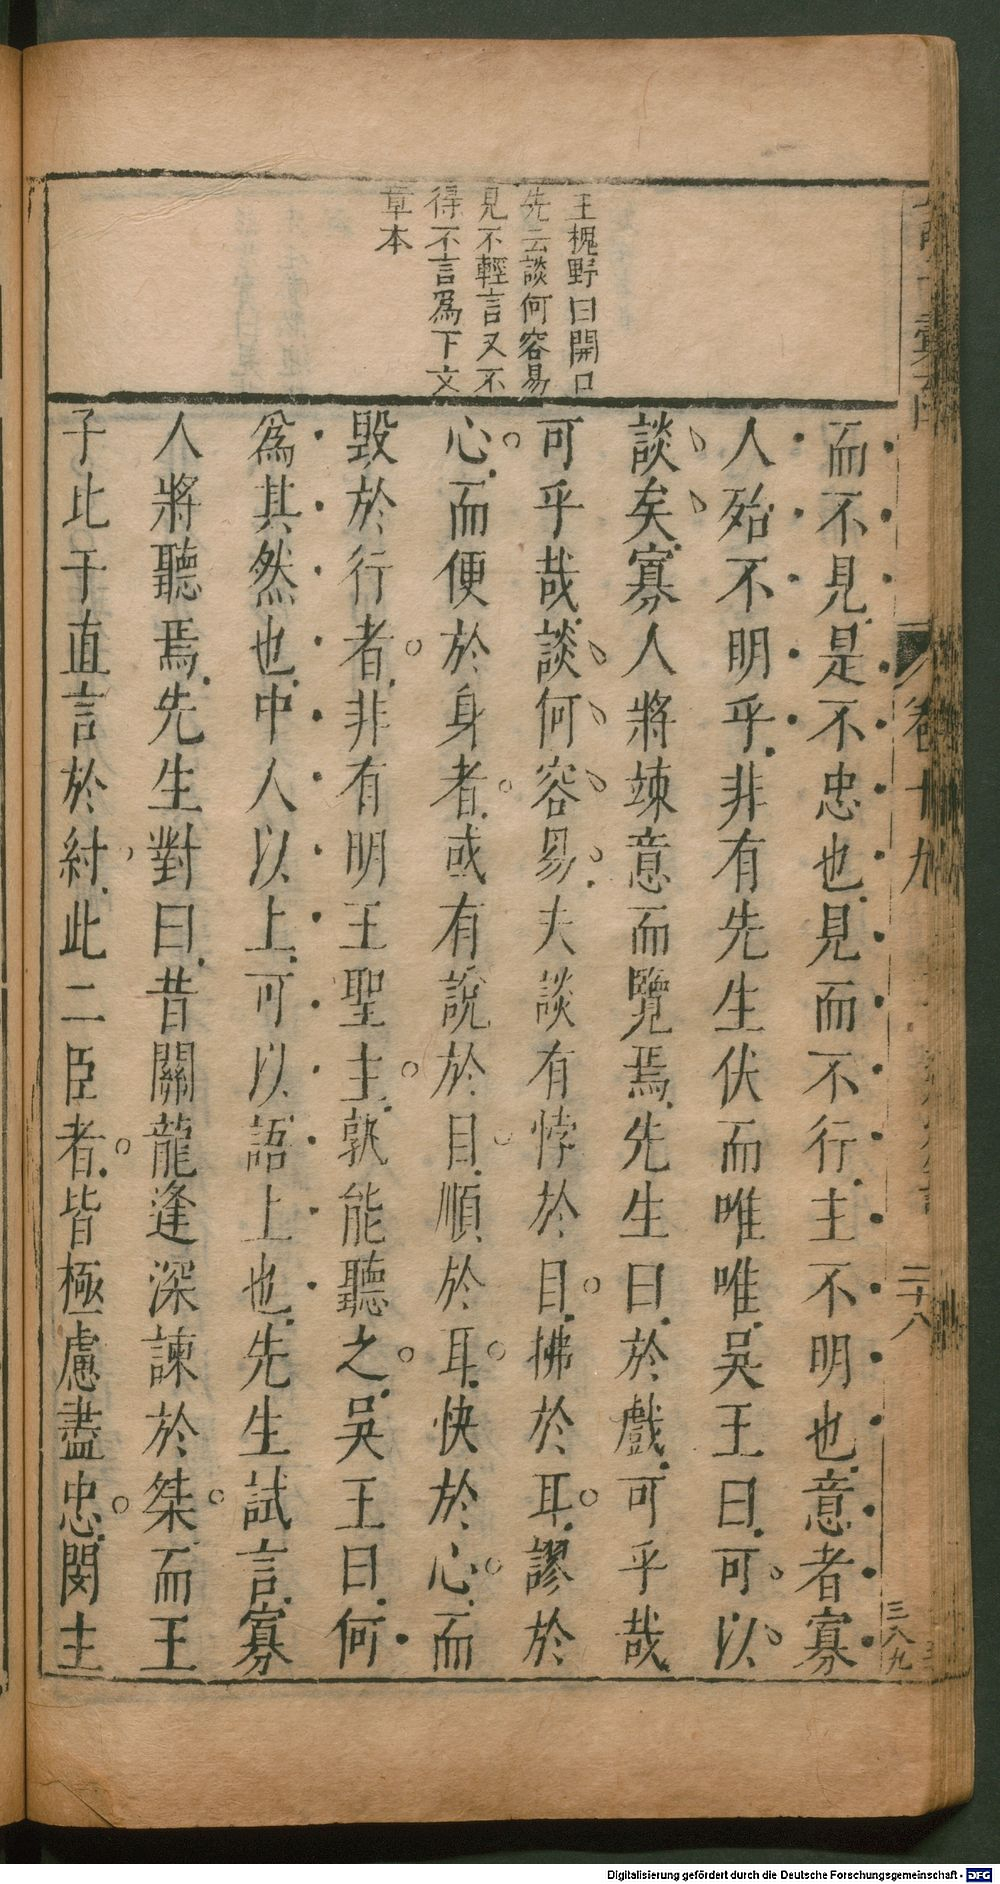 王槐野曰開口
先云談何容易
見不輕言又不
得不言爲下文
章本
而不見是不忠也見而不行主不明也意者寡
人殆不明乎非有先生伏而唯唯吳王曰可以
談矣寡人將竦意而覽焉先生曰於戲可乎哉
可乎哉談何容易夫談有悖於目拂於耳謬於
心而便於身者或有說於目順於耳快於心而
毀於行者非有明王聖主孰能聽之吳王曰何
爲其然也中人以上可以語上也先生試言寡
人將聽焉先生對曰昔關龍逢深諫於桀而王
子比干直言於紂此二臣者皆極慮盡忠閔主
卷十九
二十八
三八九
Digitalisierung gefördert durch die Deutsche Forschungsgemeinschaft - DFG